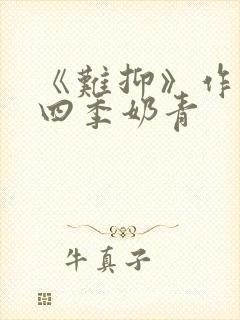 《難抑》作
四季奶青
牛真子